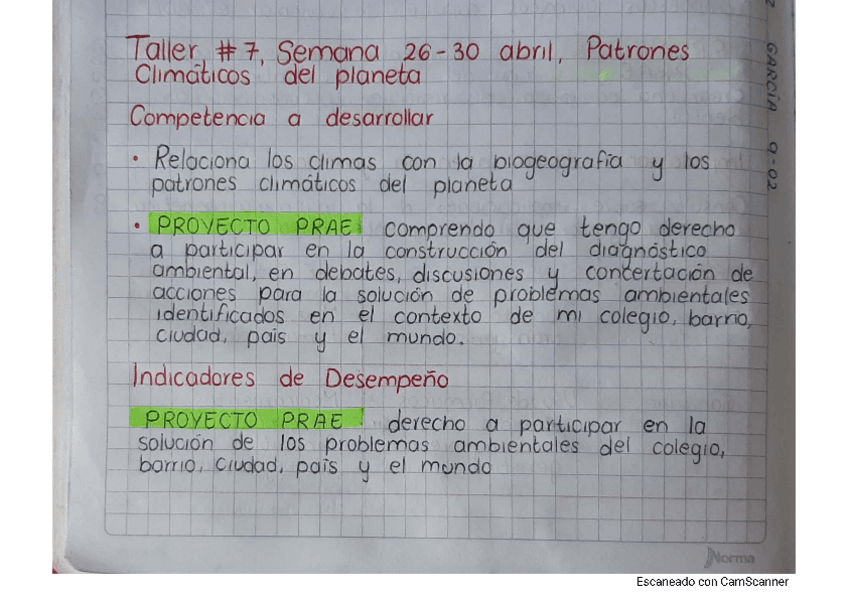 Taller #7, Semana 26-30 abril, Patrones
Climáticos del planeta
Competencia a desarrollar
• Relaciona los climas con la biogeografía y los
patrones climáticos del planeta
• PROYECTO PRAE comprendo que tengo derecho
a participar en la construcción del diagnóstico
ambiental, en debates, discusiones y contertación de
acciones para la solución de problemas ambientales
identificados en el contexto de mi colegio, barrio,
ciudad, país y el mundo.
Indicadores de Desempeño
PROYECTO PRAE derecho a participar en la
solución de los problemas ambientales del colegio,
barrio, ciudad, país y el mundo
GARCÍA 9-02
Norma
Escaneado con CamScanner